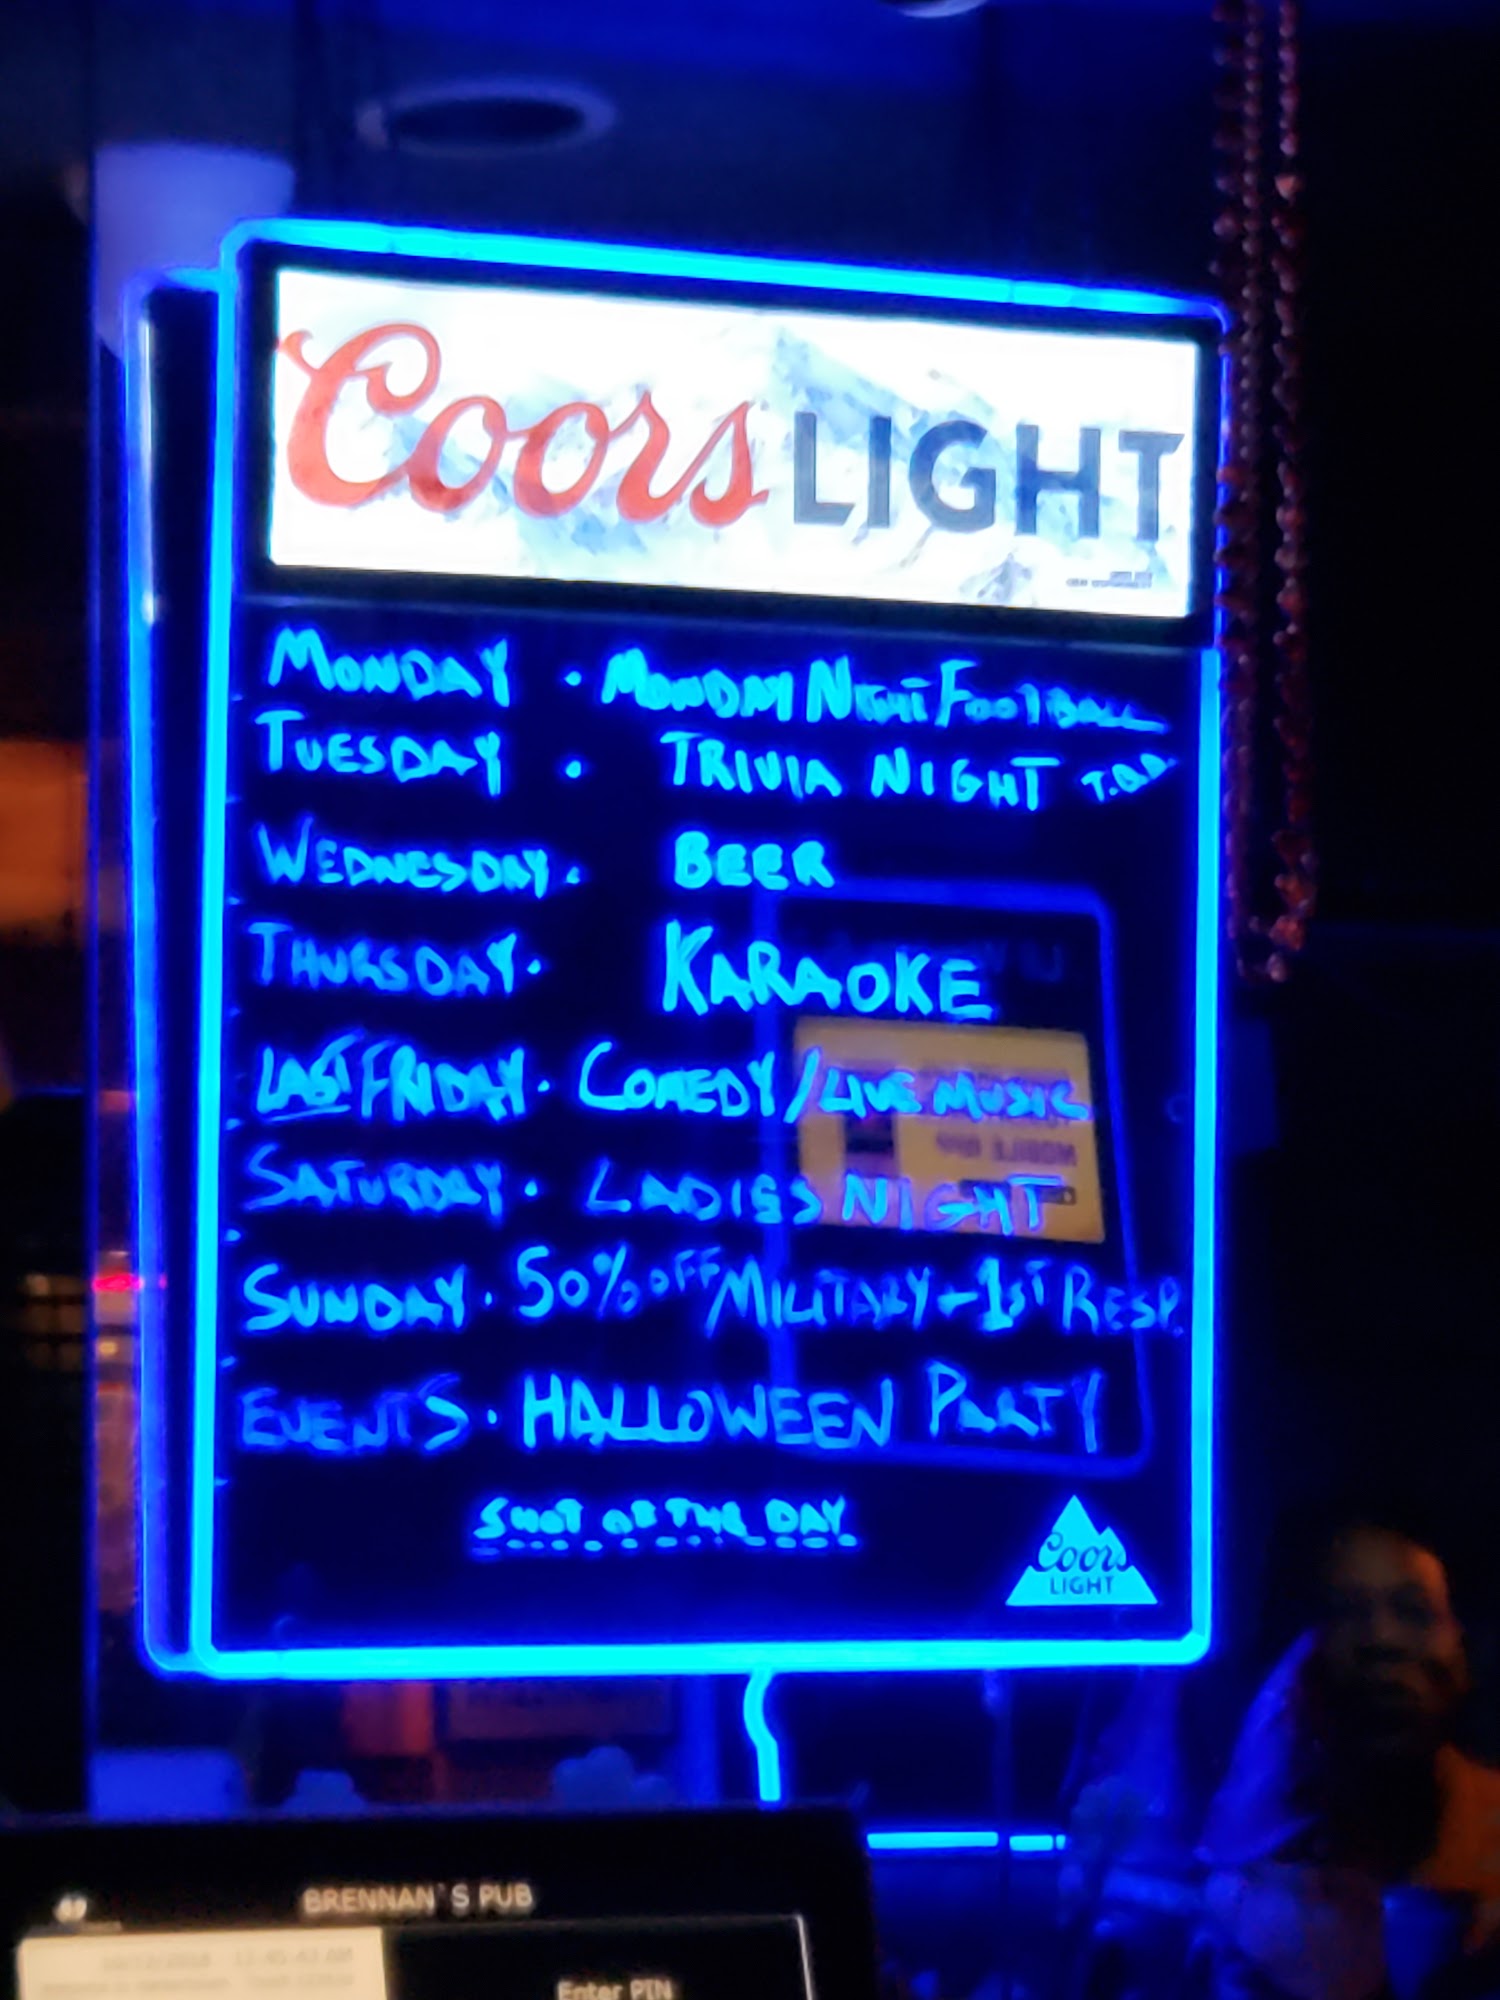 Coors LIGHT
MONDAY · MONDAY NIGHT FOOTBALL
TUESDAY · TRIVIA NIGHT
WEDNESDAY · BEER
THURSDAY · KARAOKE
LAST FRIDAY · COMEDY/LIVE MUSIC
SATURDAY · LADIES NIGHT
SUNDAY · 50% OFF MILITARY + 1ST RESP.
EVENTS · HALLOWEEN PARTY
SHOT OF THE DAY
Coors
LIGHT
BRENNAN`S PUB
Enter PIN